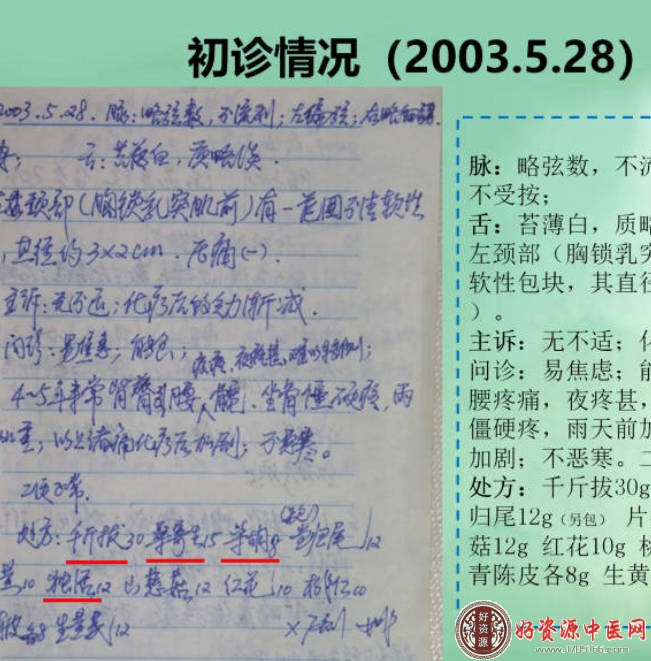 初诊情况（2003.5.28）
2003.5.28. 脉：略弦数，不流利；
舌：苔薄白，质略淡。
颈部（胸锁乳突肌前）有一范围不清软性
，直径约3×2cm．压痛(-)．
主诉：无不适；化疗后听力渐减．
问诊：易焦虑；能食；夜疼甚
4~5年来常背臀引腰、髋．坐骨僵硬疼，雨
重；以上诸痛化疗后加剧；不恶寒。
二便正常．
处方：千斤拔30 桑寄生15 当归尾12
10 独活12 山慈菇12 红花10 10
皮各8 生黄芪12
脉：略弦数，不流
不受按；
舌：苔薄白，质略
左颈部（胸锁乳突
软性包块，其直径
）。
主诉：无不适；化
问诊：易焦虑；能
腰疼痛，夜疼甚，
僵硬疼，雨天前加
加剧；不恶寒。二
处方：千斤拔30g
归尾12g（另包） 片
菇12g 红花10g 桃
青陈皮各8g 生黄
好资源
好资源中医网
www.1705166.com